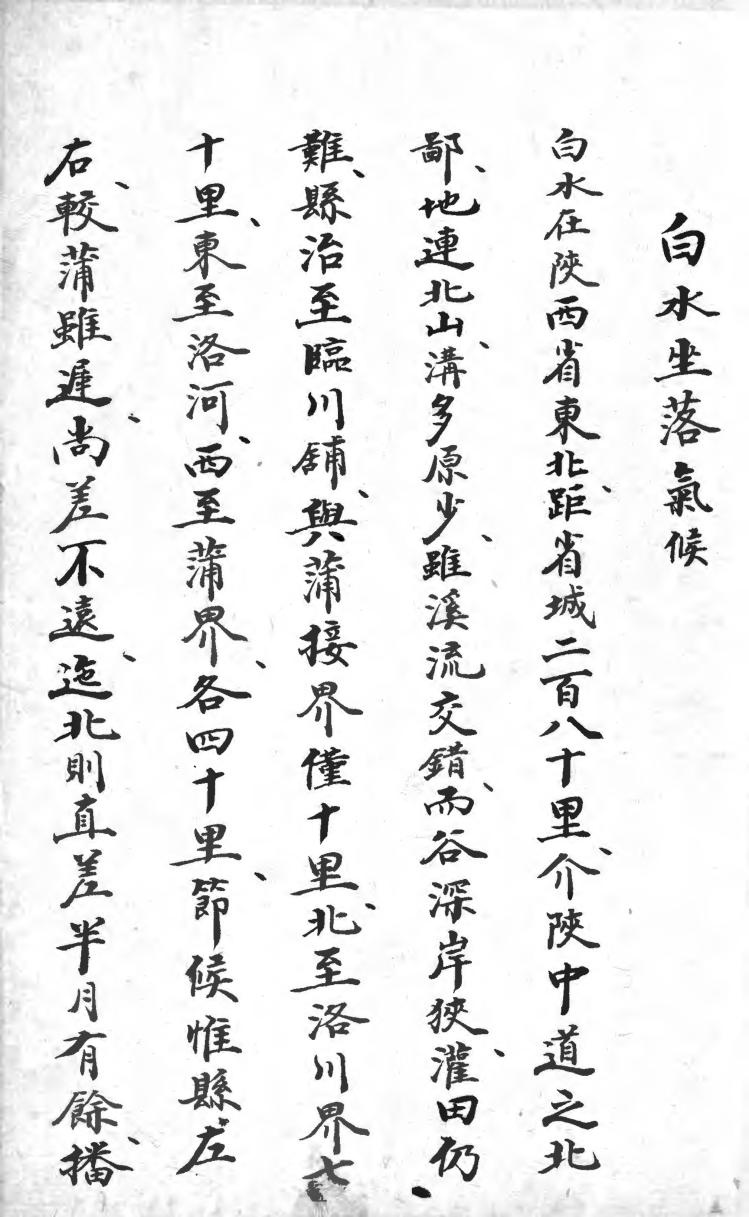 白水坐落氣候
白水在陝西省東北、距省城二百八十里、介陝中道之北
鄙、地連北山、溝多原少、雖溪流交錯、而谷深岸狹、灌田仍
難、縣治至臨川舖、與蒲接界僅十里、北至洛川界七
十里、東至洛河、西至蒲界、各四十里、節候惟縣左
右、較蒲雖遲、尚差不遠、迤北則直差半月有餘、播